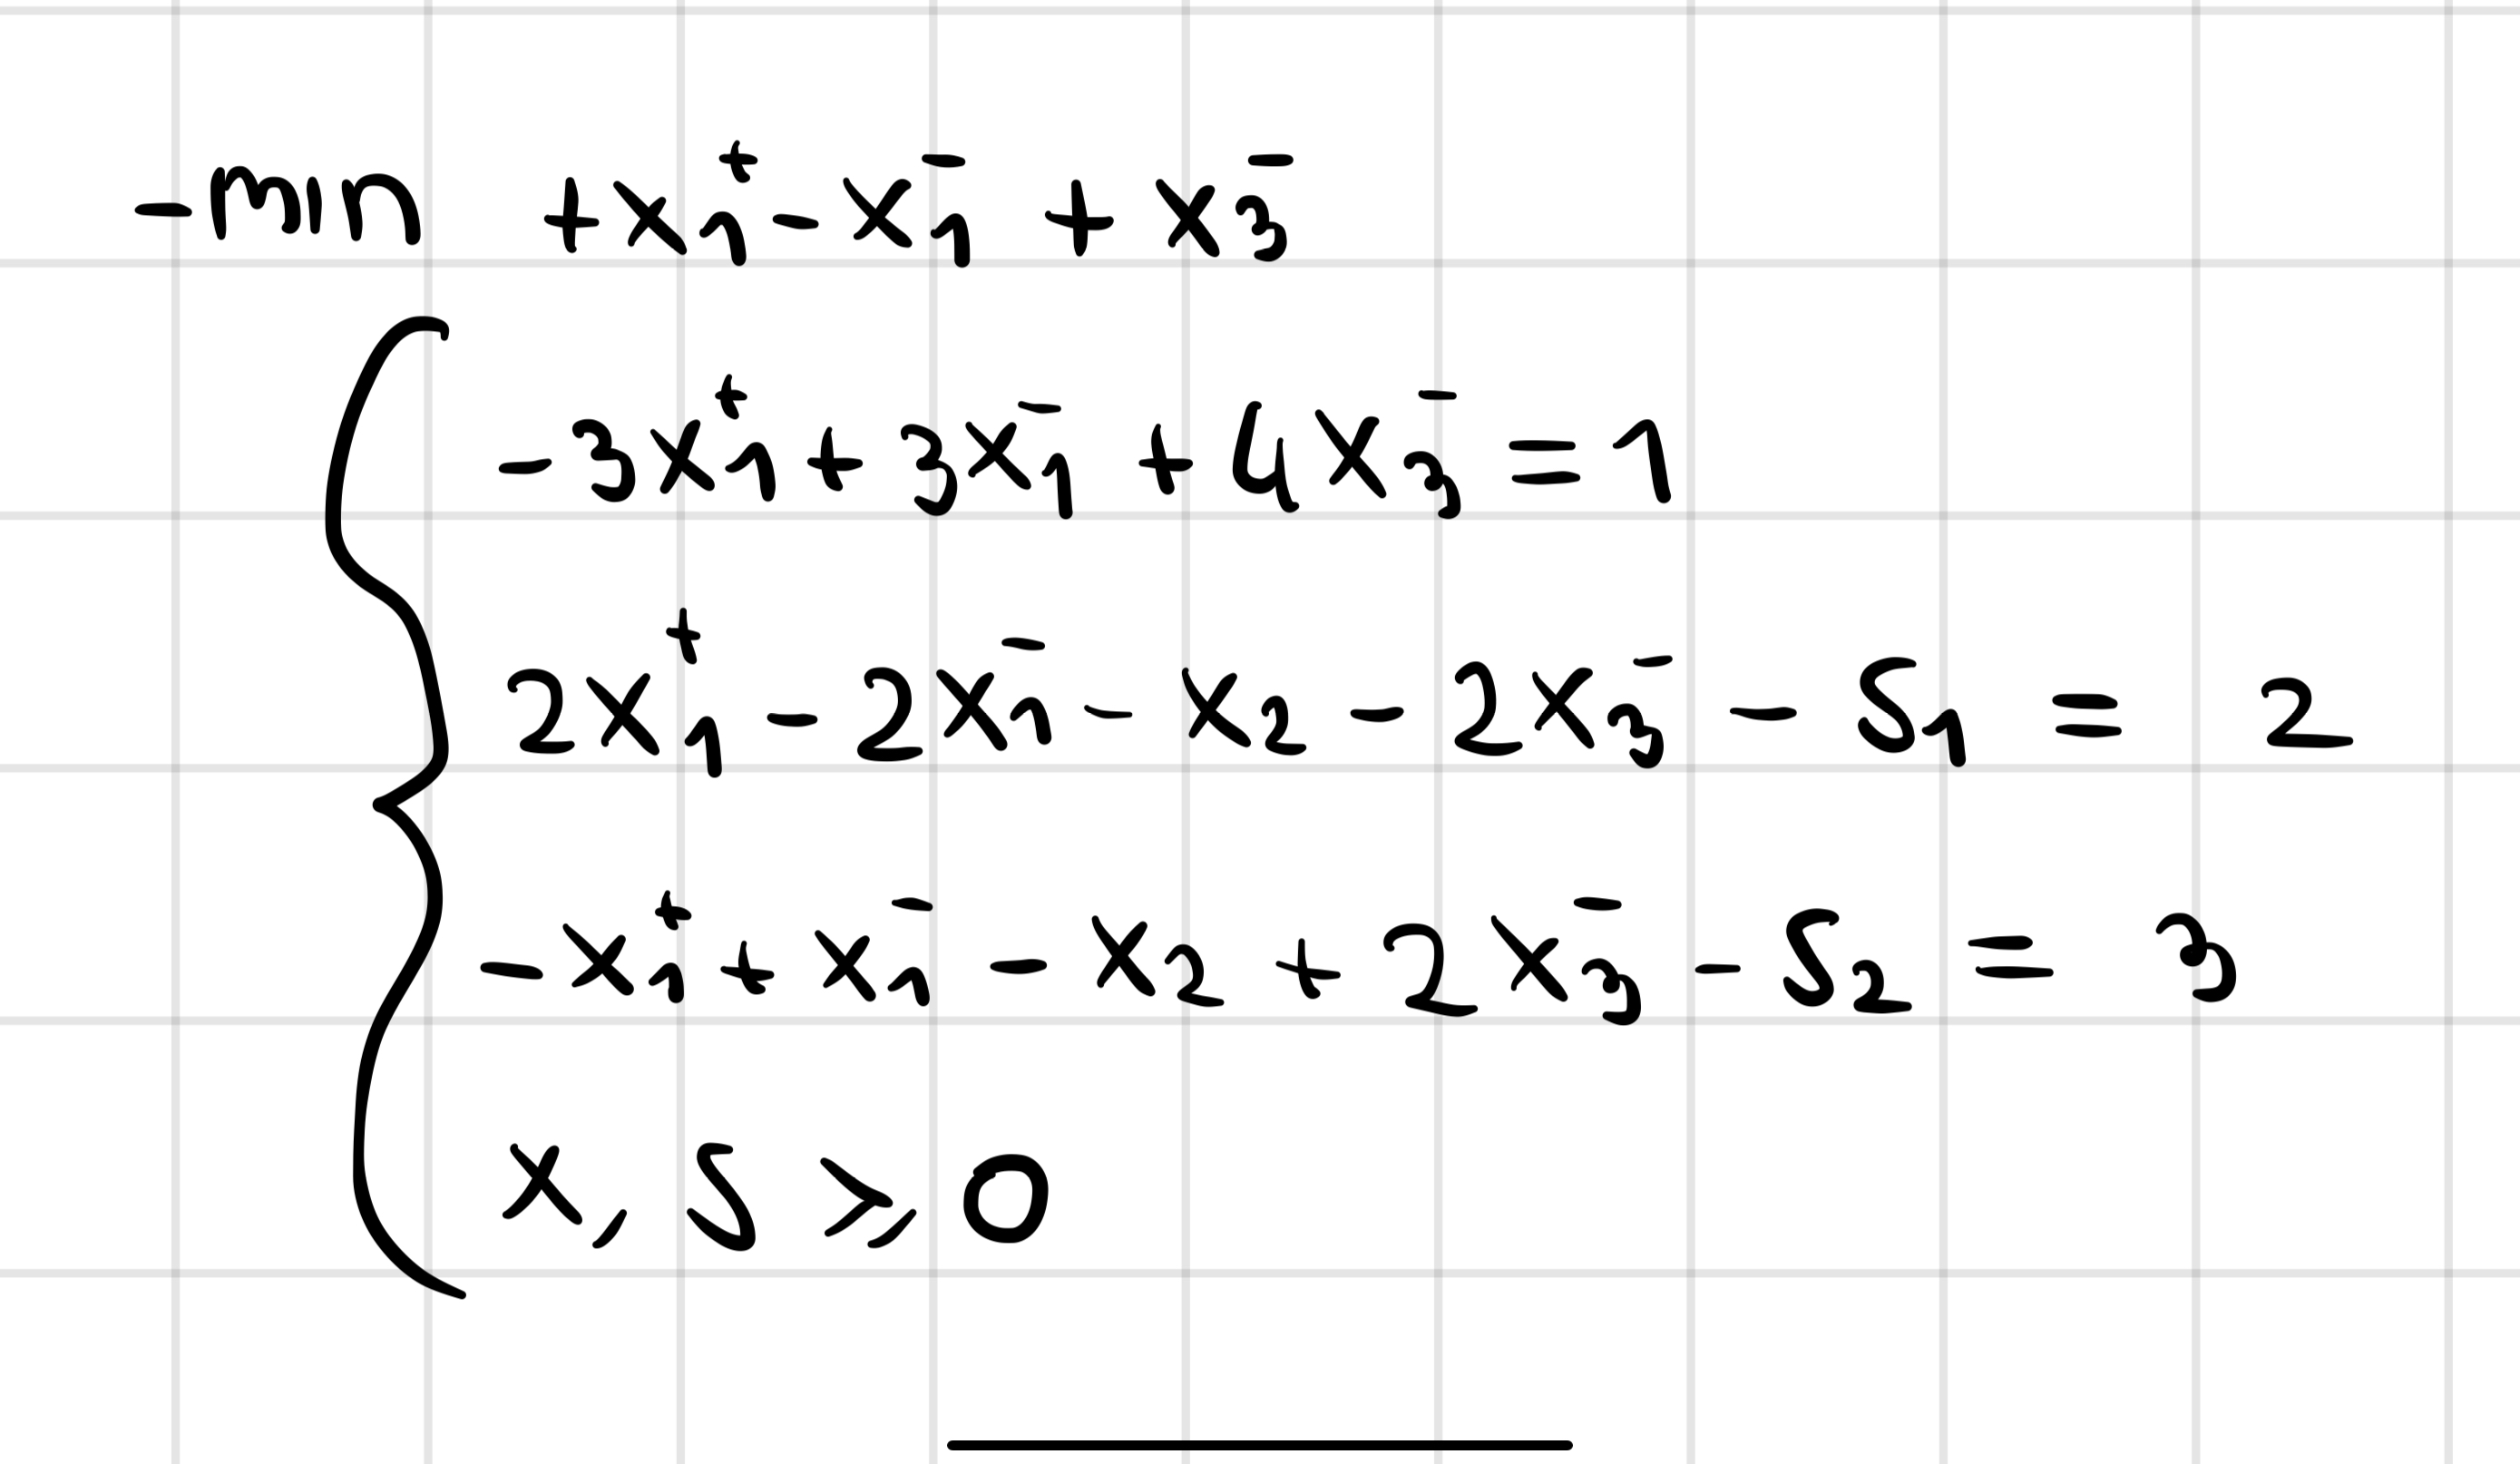 -min +x₁⁺ - x₁⁻ + x₃⁻
-3x₁⁺ + 3x₁⁻ + 4x₃⁻ = 1
2x₁⁺ - 2x₁⁻ - x₂ - 2x₃⁻ - S₁ = 2
-x₁⁺ + x₁⁻ - x₂ + 2x₃⁻ - S₂ = 3
x, S ⩾ 0